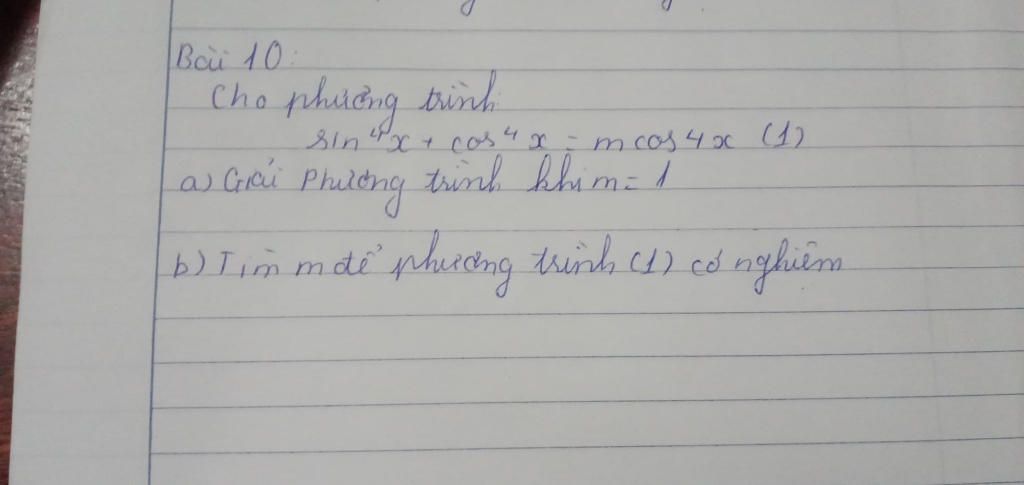 Bài 10:
Cho phương trình:
sin⁴x + cos⁴x = mcos4x (1)
a) Giải Phương trình khi m = 1
b) Tìm m để phương trình (1) có nghiệm